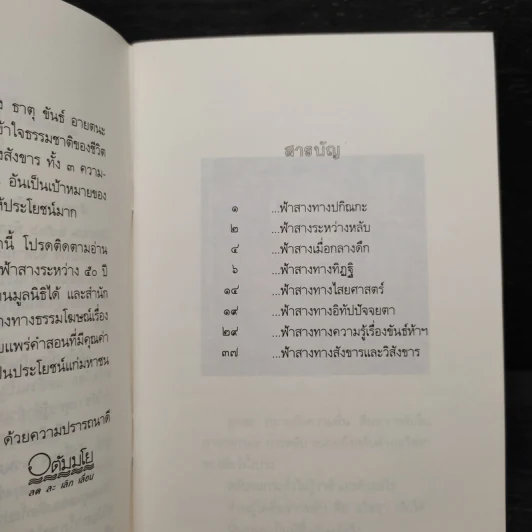 ธาตุ ขันธ์ อายตนะ
ข้าใจธรรมชาติของชีวิต
งสังขาร ทั้ง ๓ ความ-
อันเป็นเป้าหมายของ
ห้ประโยชน์มาก
านี้ โปรดติดตามอ่าน
ฟ้าสางระหว่าง ๕๐ ปี
านมูลนิธิได้ และสำนัก
างทางธรรมโฆษณ์เรื่อง
ยแพร่คำสอนที่มีคุณค่า
ป็นประโยชน์แก่มหาชน
ด้วยความปรารถนาดี
อตัมมโย
ลด ละ เลิก เลื่อน
สารบัญ
๑ ...ฟ้าสางทางปกิณกะ
๒ ...ฟ้าสางระหว่างหลับ
๔ ...ฟ้าสางเมื่อกลางดึก
๖ ...ฟ้าสางทางทิฏฐิ
๑๔ ...ฟ้าสางทางไสยศาสตร์
๑๙ ...ฟ้าสางทางอิทัปปัจจยตา
๒๙ ...ฟ้าสางทางความรู้เรื่องขันธ์ห้าฯ
๓๗ ...ฟ้าสางทางสังขารและวิสังขาร